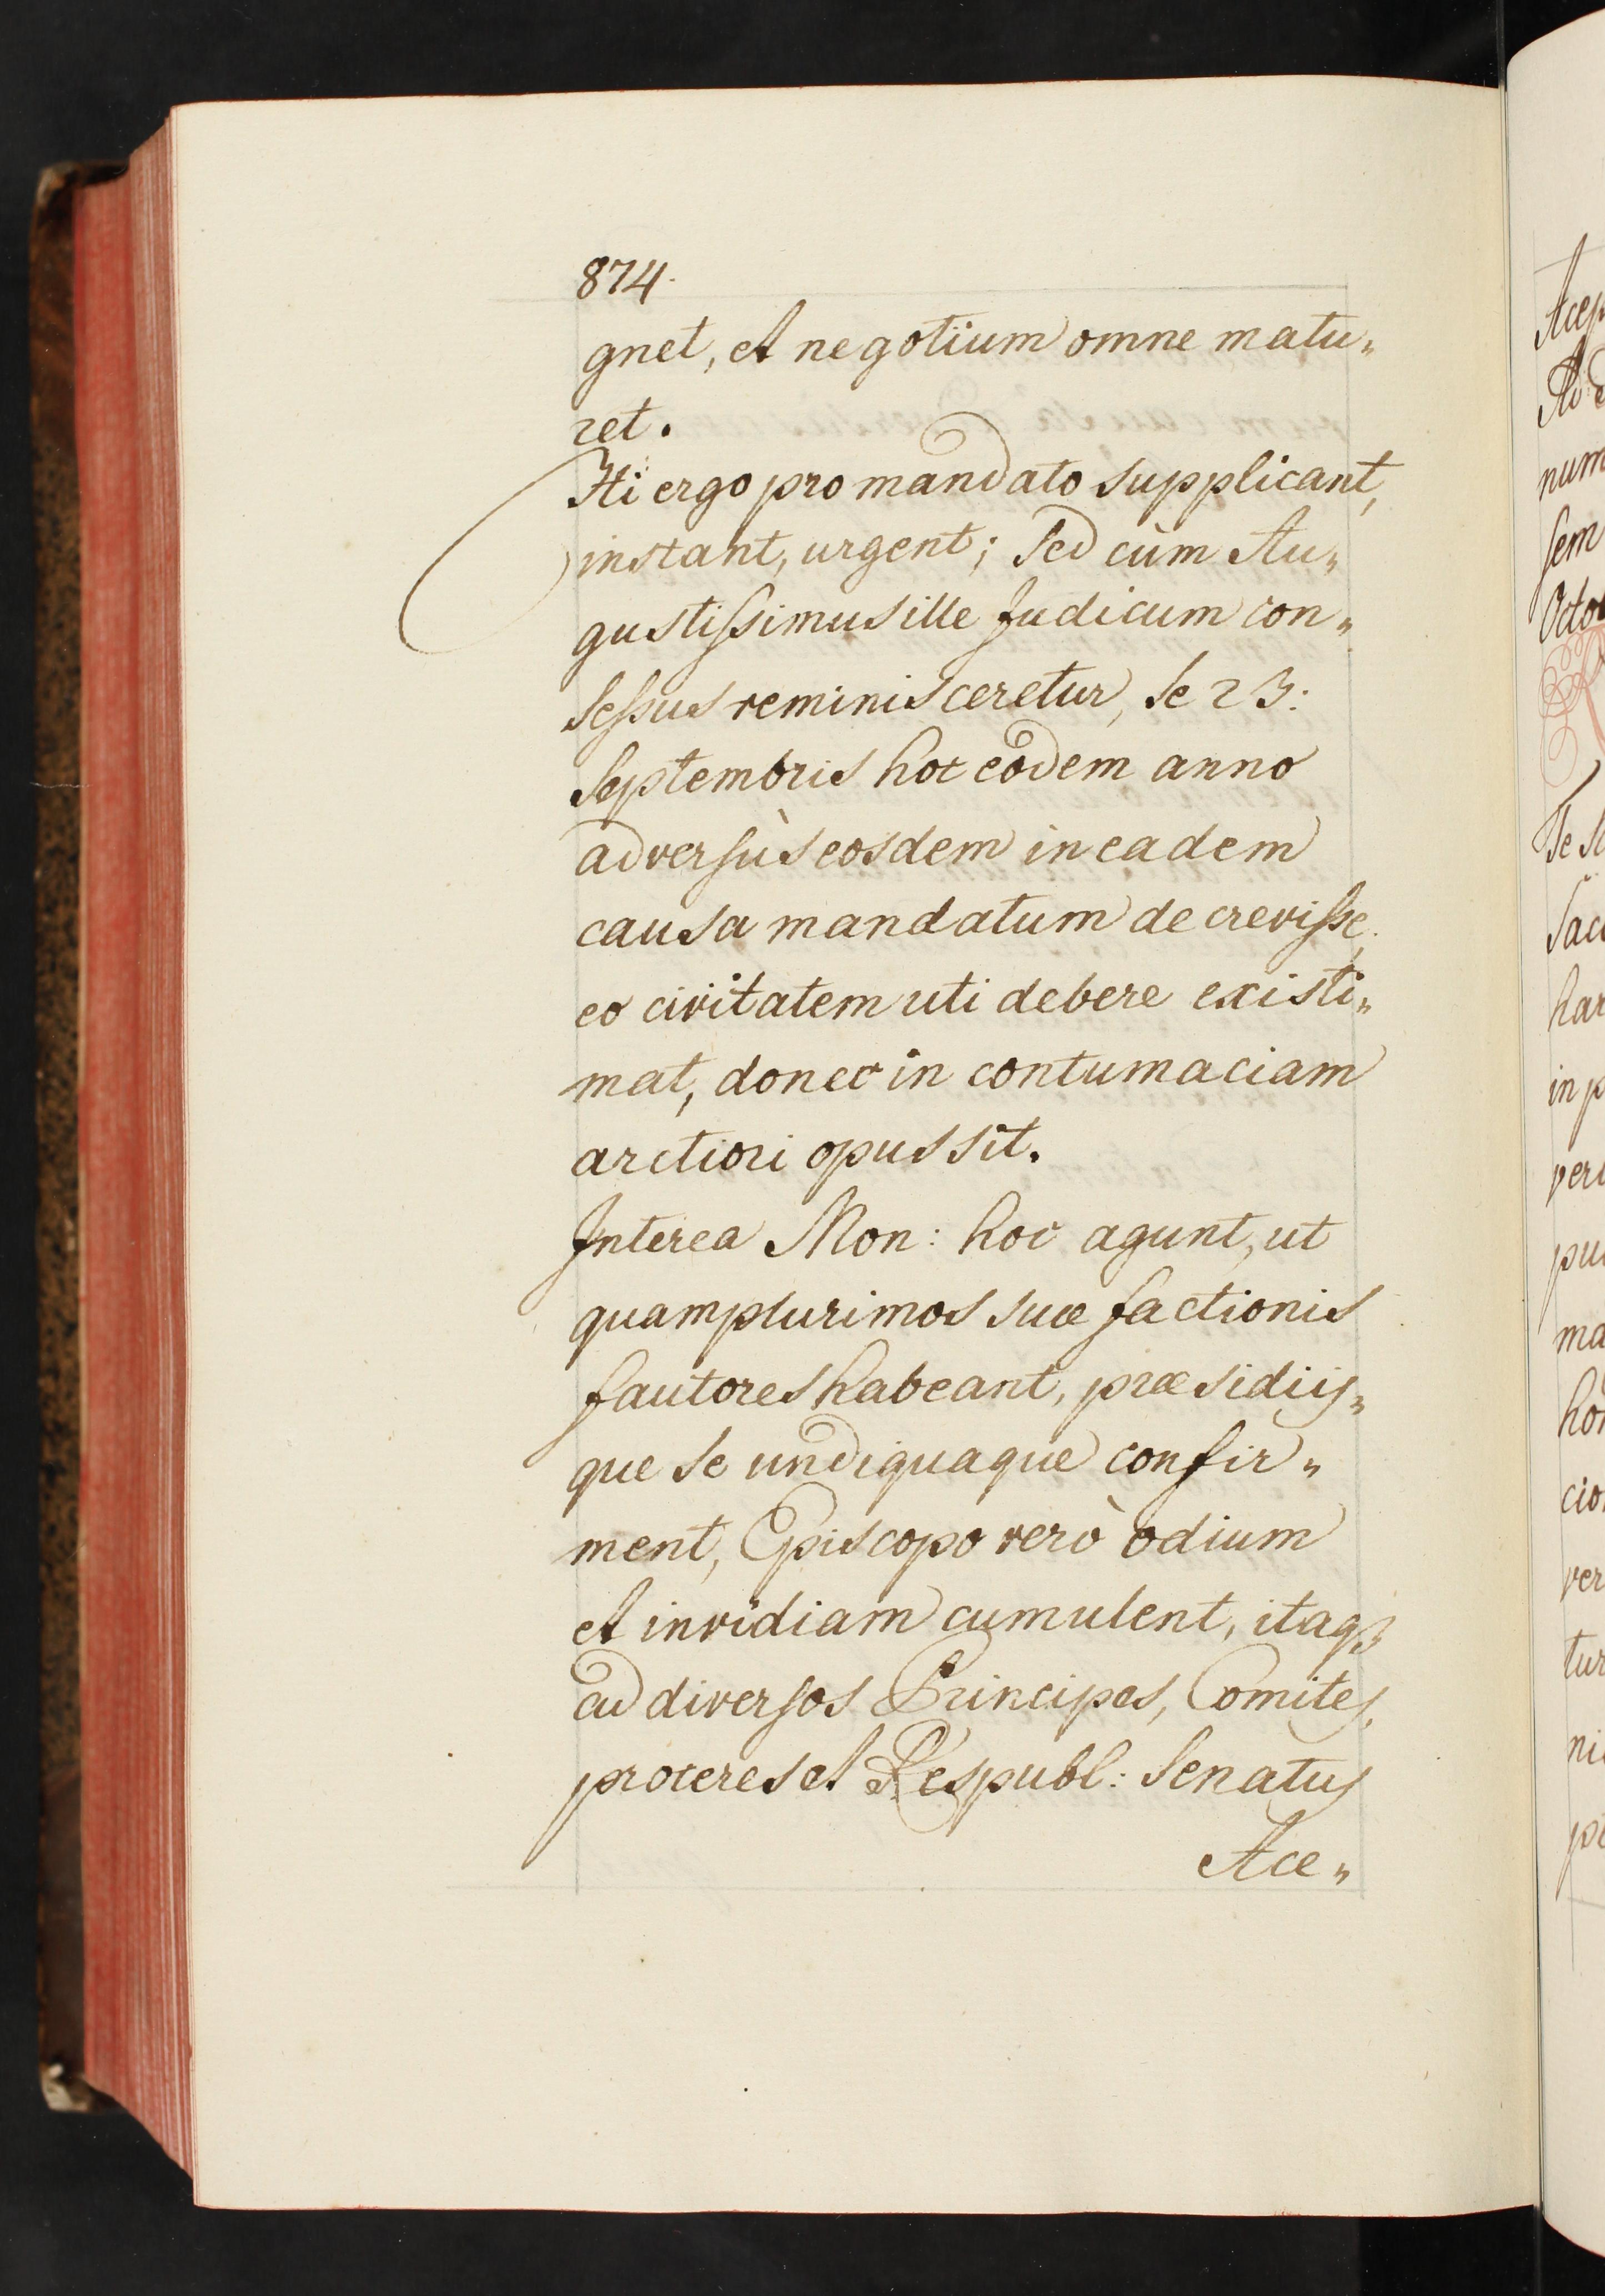 874.
gnet, et negotium omne matu„
ret.
Hi ergo pro mandato supplicant,
instant, urgent; sed cùm Au„
gustissimus ille Judicum con„
sessus reminisceretur, se 23:
Septembris hoc eodem anno
adversùs eosdem in eadem
causa mandatum decrevisse,
eo civitatem uti debere existi„
mat, donec in contumaciam
arctiori opus sit.
Interea Mon: hoc agunt, ut
quamplurimos suæ factionis
fautores habeant, præsidiis„
que se undiquaque confir„
ment, Episcopo verò odium
et invidiam cumulent, itaq3
ad diversos Principes, Comites,
proceres et Respubl: Senatus
Ace„
num
sem
Octob